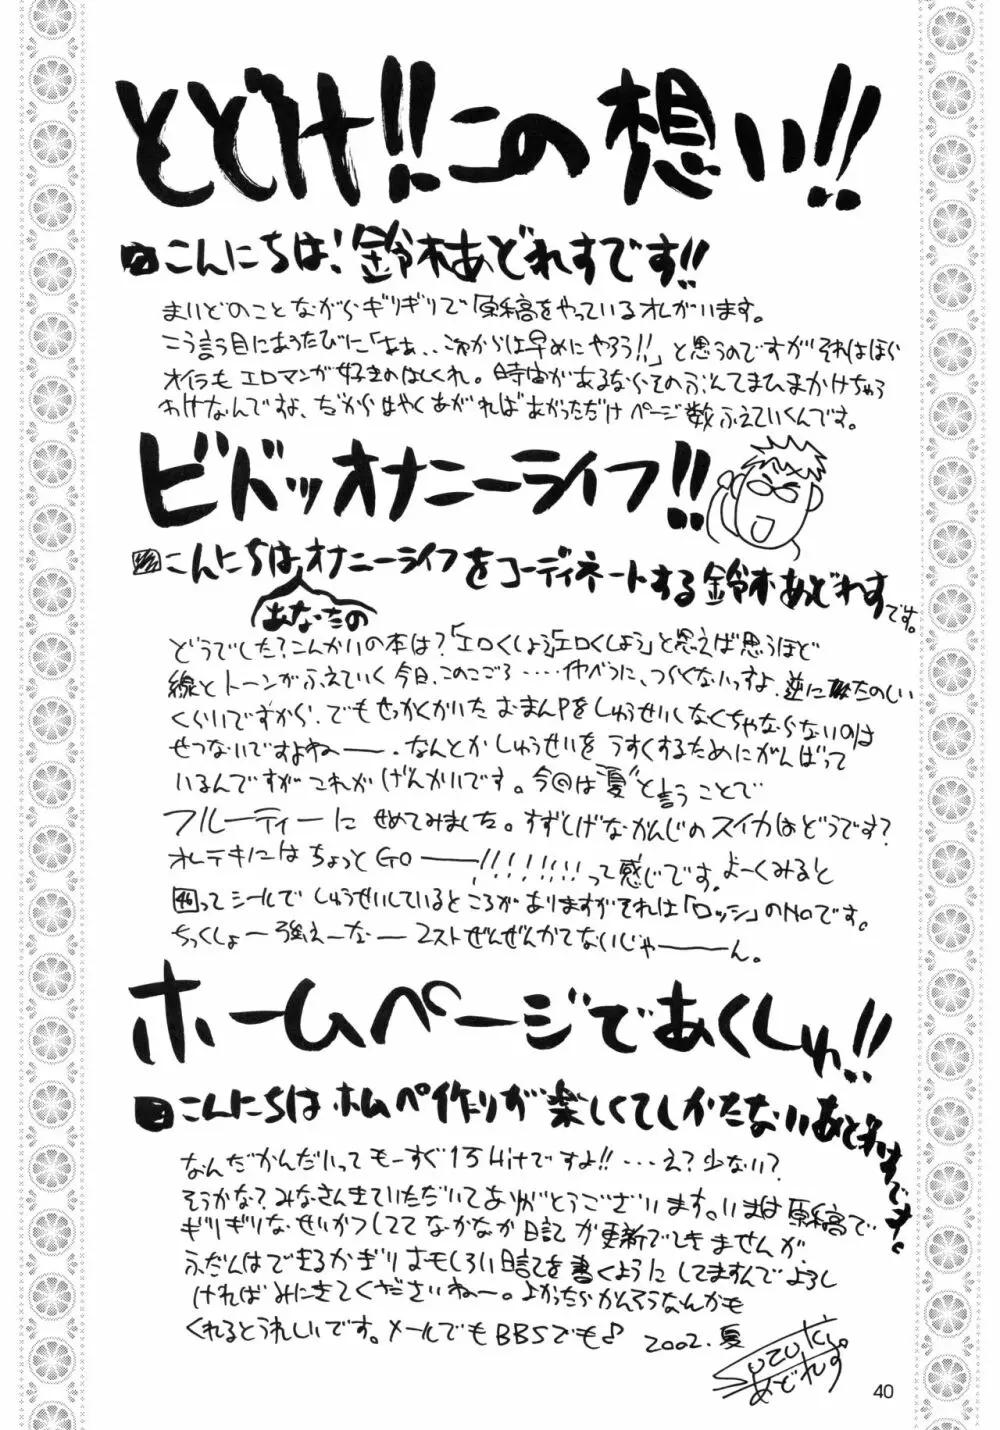 とどけ!!この想い!!
こんにちは!鈴木あどれすです!!
まいどのことながらギリギリで原稿をやっているオレがいます。
こう言う目にあうたびに「ああ..これからは早めにやろう!!」と思うのですがそれはほら
オイラもエロマンガ好きのはしくれ。時間があるならそのぶんてまひまかけちゃう
わけなんですよ、だからはやくあがればあがっただけページ数ふえていくんです。
ビドッオナニーライフ!!
こんにちはあなたのオナニーライフをコーディネートする鈴木あどれすです。
どうでした?こんかいの本は?「エロくしよう」「エロくしよう」と思えば思うほど
線とトーンがふえていく今日、このごろ‥‥‥べつに、つらくないっすよ、逆にたのしい
くらいですから、でもせっかくかいたおまんPをしゅうせいしなくちゃならないのは
せつないですよねー―。なんとかしゅうせいをうすくするためにがんばって
いるんですがこれがげんかいです。今回は"夏"と言うことで
フルーティーにせめてみました。すずしげなかんじのスイカはどうです?
オレテキにはちょっとGO――!!!!!!!!って感じです。よーくみると
46ってシールでしゅうせいしているところがありますがそれは「ロッシ」のNoです。
ちっくしょー強えーなー2ストぜんぜんかてないじゃーーん。
ホームページであくしゅ!!
こんにちはホムペ作りが楽しくてしかたないあどれすです。
なんだかんだいってもーすぐ15Hitですよ!!‥‥え?少ない?
そうかな?みなさんきていただいてありがとうございます。いまは原稿で
ギリギリなせいかつしててなかなか日記が更新できませんが、
ふだんはできるかぎりおもしろい日記を書くようにしてますんでよろし
ければみにきてくださいねー。よかったらかんそうなんかも
くれるとうれしいです。メールでもBBSでも♪ 2002.夏
Suzuki
あどれす
40